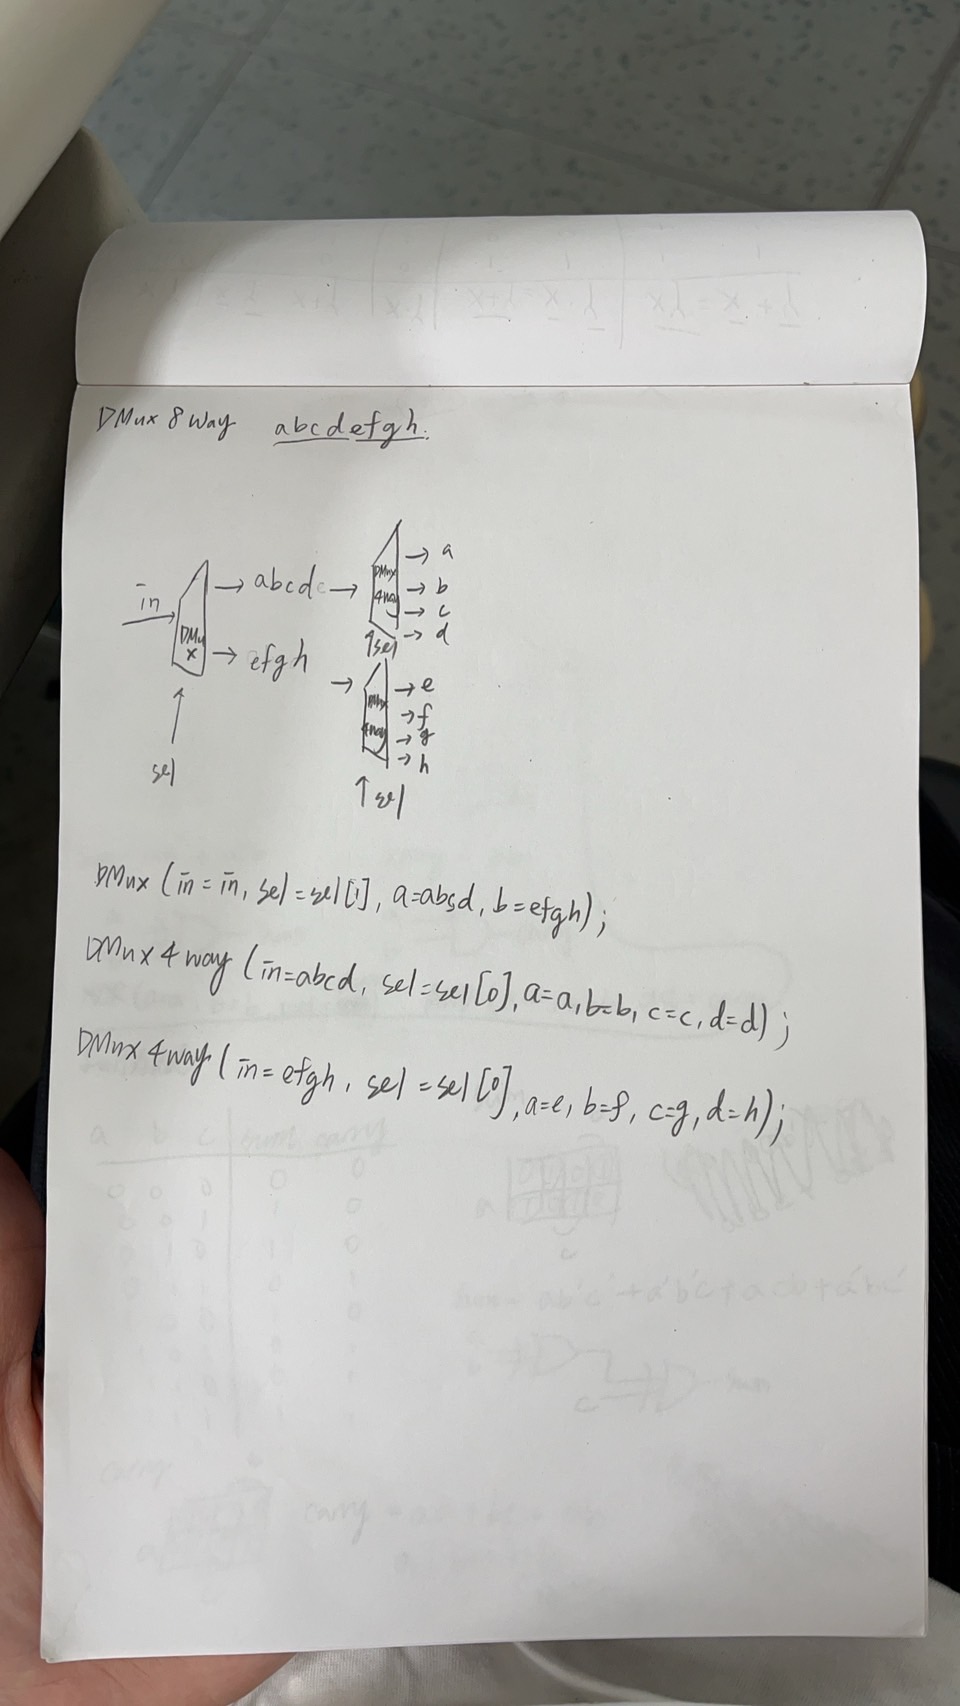 DMux 8 Way abcdefgh.
in
DMux
sel
abcd
efgh
DMux
4way
sel
a
b
c
d
DMux
4way
sel
e
f
g
h
DMux (in = in, sel = sel[1], a=abcd, b=efgh);
DMux 4 way (in=abcd, sel=sel[0], a=a, b=b, c=c, d=d);
DMux 4way (in= efgh, sel =sel[0], a=e, b=f, c=g, d=h);